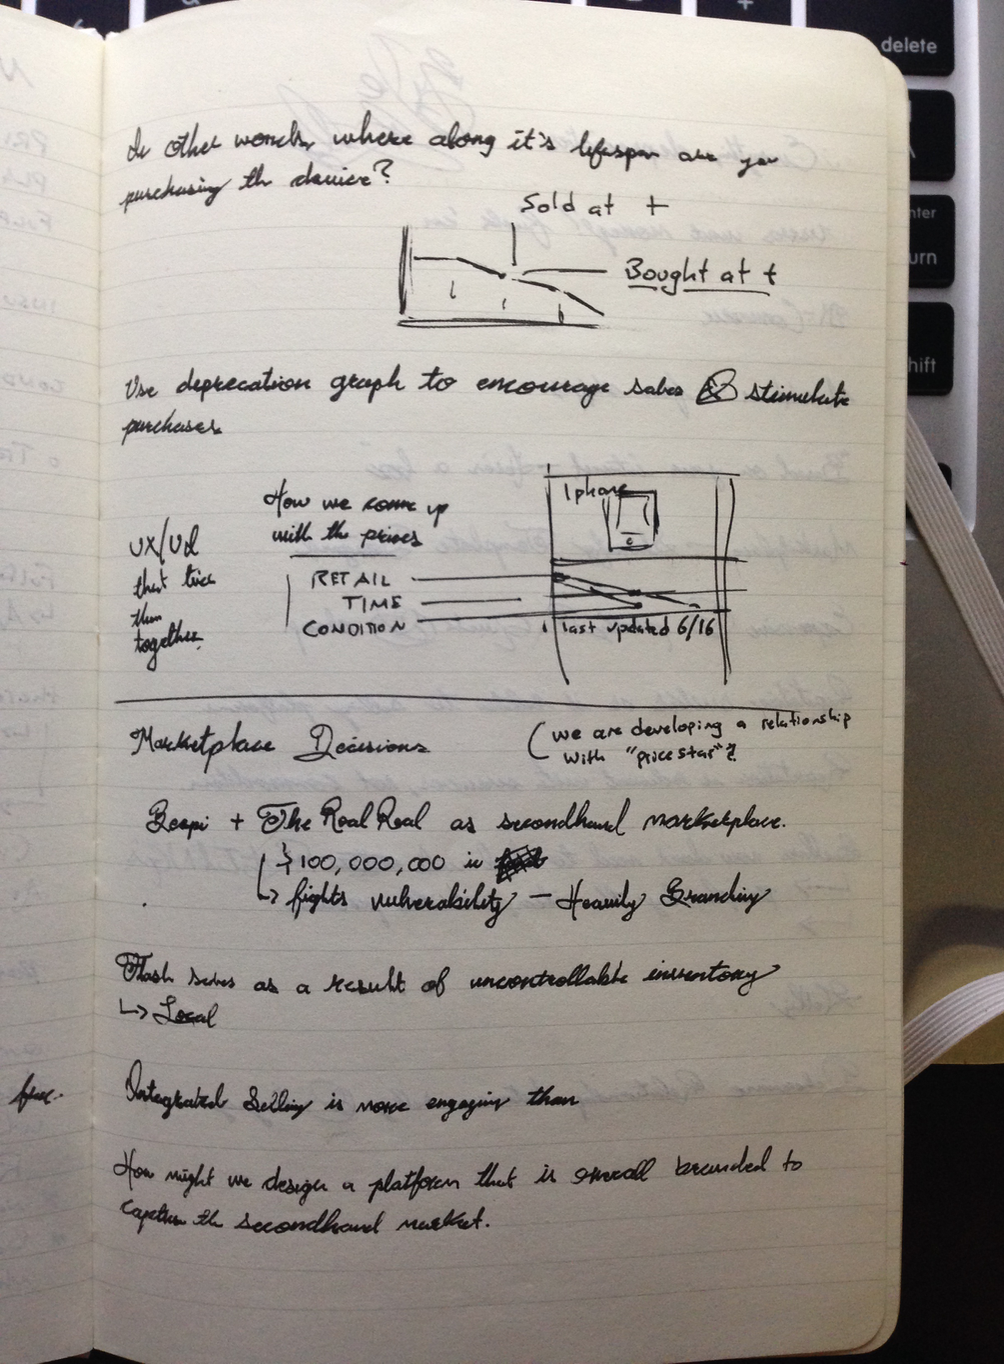 In other words, where along it's lifespan are you
purchasing the device?
Sold at t
Bought at t
Use deprecation graph to encourage sales & stimulate
purchases
How we come up
with the prices
UX/UI
that ties
them
together.
RETAIL
TIME
CONDITION
iphone
last updated 6/16
Marketplace Decisions
(we are developing a relationship
with "price star"?
Beepi + The RealReal as secondhand marketplace.
$100,000,000 in
↳ fights vulnerability - Heavily Branding
Flash sales as a result of uncontrollable inventory
↳ Local
Integrated Selling is more engaging than
How might we design a platform that is overall branded to
capture the secondhand market.
delete
shift